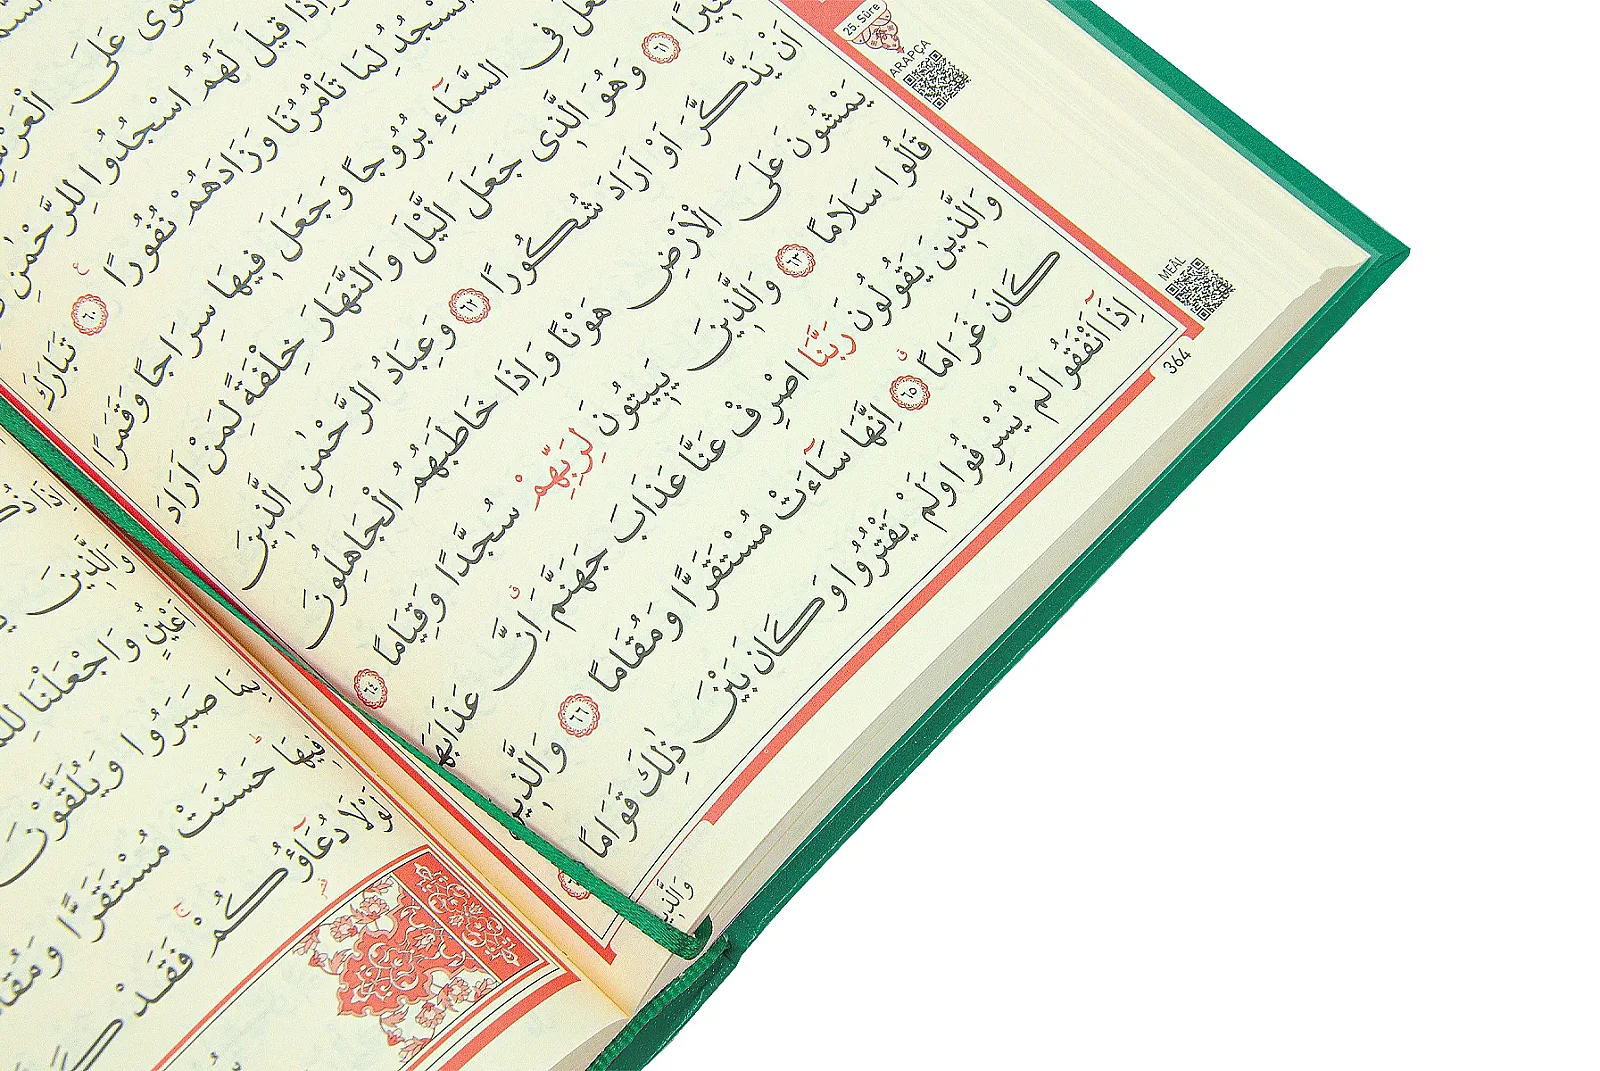 25. Sûre
ARAPÇA
عَلَى الْعَرْشِ
وَاِذَا قِيلَ لَهُمُ اسْجُدُوا لِلرَّحْمٰنِ
اَنَسْجُدُ لِمَا تَأْمُرُنَا وَزَادَهُمْ نُفُورًا ﴿٦٠﴾ تَبَارَكَ
جَعَلَ فِي السَّمَٓاءِ بُرُوجًا وَجَعَلَ فِيهَا سِرَاجًا وَقَمَرًا
﴿٦١﴾ وَهُوَ الَّذِى جَعَلَ الَّيْلَ وَالنَّهَارَ خِلْفَةً لِمَنْ اَرَادَ
اَنْ يَذَّكَّرَ اَوْ اَرَادَ شُكُورًا ﴿٦٢﴾ وَعِبَادُ الرَّحْمٰنِ الَّذِينَ
يَمْشُونَ عَلَى الْاَرْضِ هَوْنًا وَاِذَا خَاطَبَهُمُ الْجَاهِلُونَ
قَالُوا سَلَامًا ﴿٦٣﴾ وَالَّذِينَ يَبِيتُونَ لِرَبِّهِمْ سُجَّدًا وَقِيَامًا ﴿٦٤﴾
وَالَّذِينَ يَقُولُونَ رَبَّنَا اصْرِفْ عَنَّا عَذَابَ جَهَنَّمَ اِنَّ عَذَابَهَا
كَانَ غَرَامًا ﴿٦٥﴾ اِنَّهَا سَٓاءَتْ مُسْتَقَرًّا وَمُقَامًا ﴿٦٦﴾ وَالَّذِينَ
اِذَٓا اَنْفَقُوا لَمْ يُسْرِفُوا وَلَمْ يَقْتُرُوا وَكَانَ بَيْنَ ذٰلِكَ قَوَامًا
MEÂL
364
وَالَّذِينَ
اِذَا
وَالَّذِينَ
اَعْيُنٍ وَاجْعَلْنَا
بِمَا صَبَرُوا وَيُلَقَّوْنَ
فِيهَا حَسُنَتْ مُسْتَقَرًّا
لَوْلَا دُعَٓاؤُكُمْ فَقَدْ